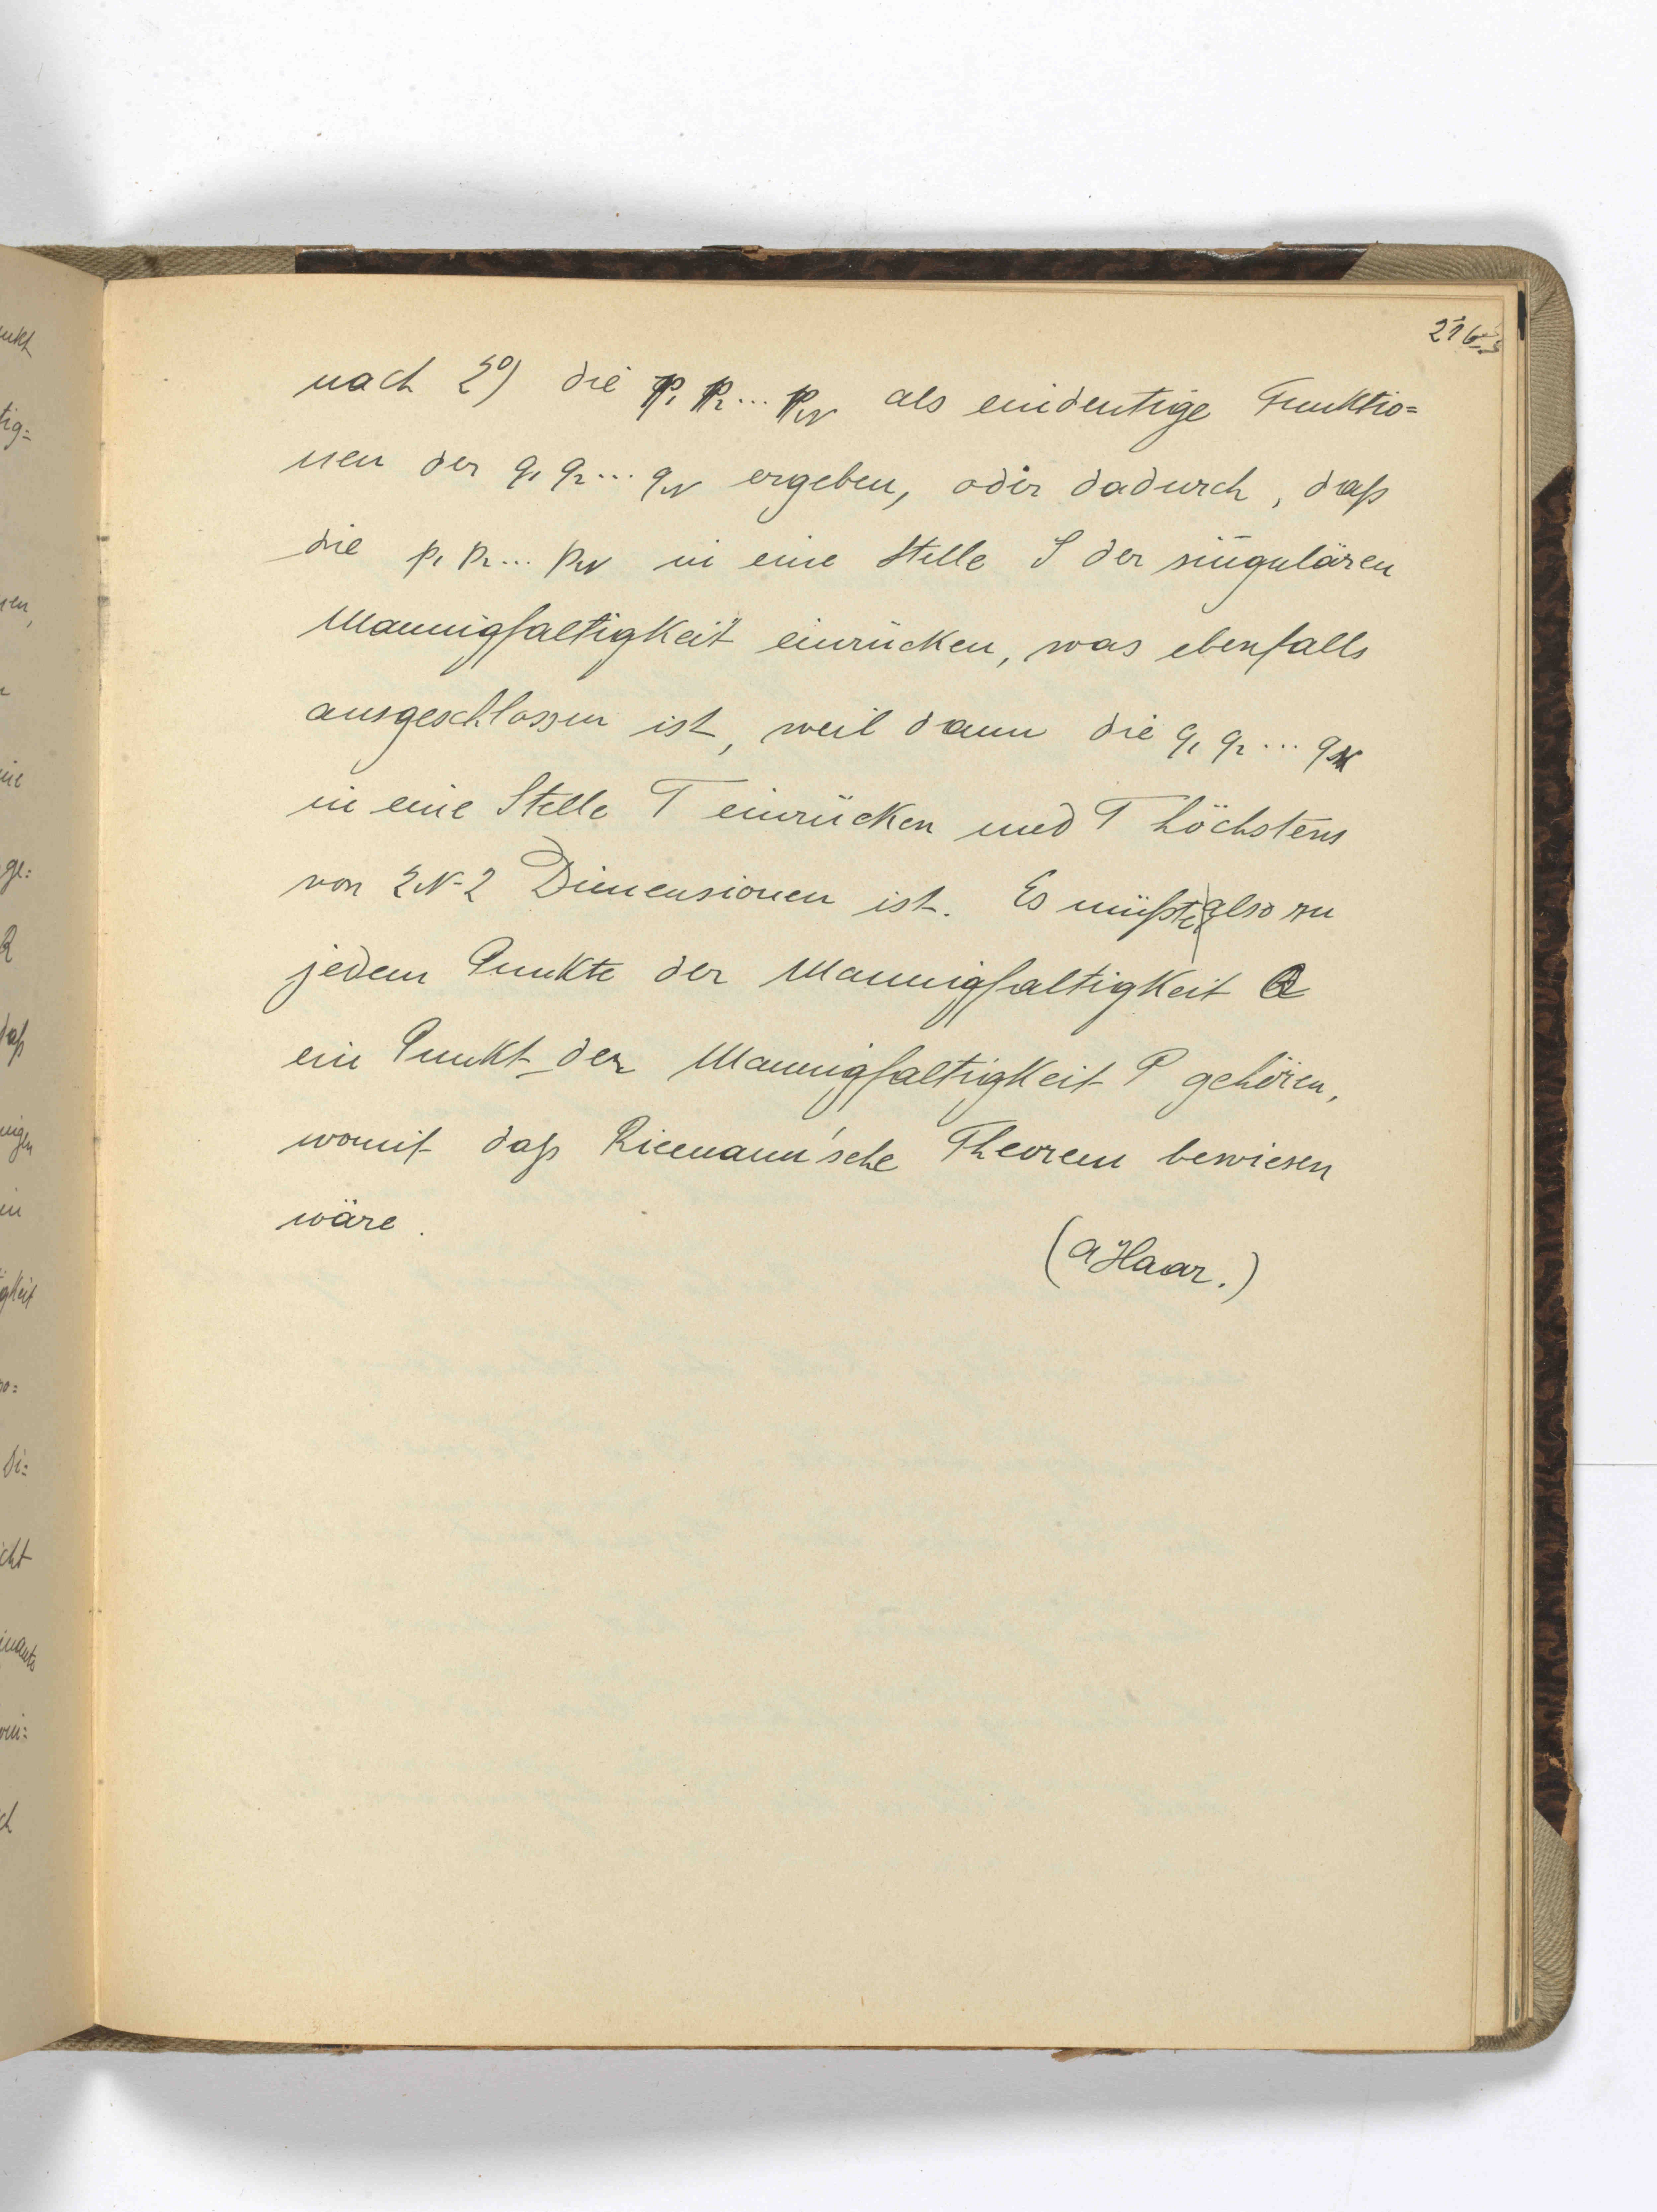 216
nach 2°) die p₁ p₂ ... p_N als eindeutige Funktio=
nen der q₁ q₂ ... q_N ergeben, oder dadurch, daß
die p₁ p₂ ... p_N in eine Stelle S der singulären
Mannigfaltigkeit einrücken, was ebenfalls
ausgeschlossen ist, weil dann die q₁ q₂ ... q_N
in eine Stelle T einrücken und T höchstens
von 2N-2 Dimensionen ist. Es müßte also zu
jedem Punkte der Mannigfaltigkeit Q
ein Punkt der Mannigfaltigkeit P gehören,
womit daß Riemann'sche Theorem bewiesen
wäre.
(A Haar.)